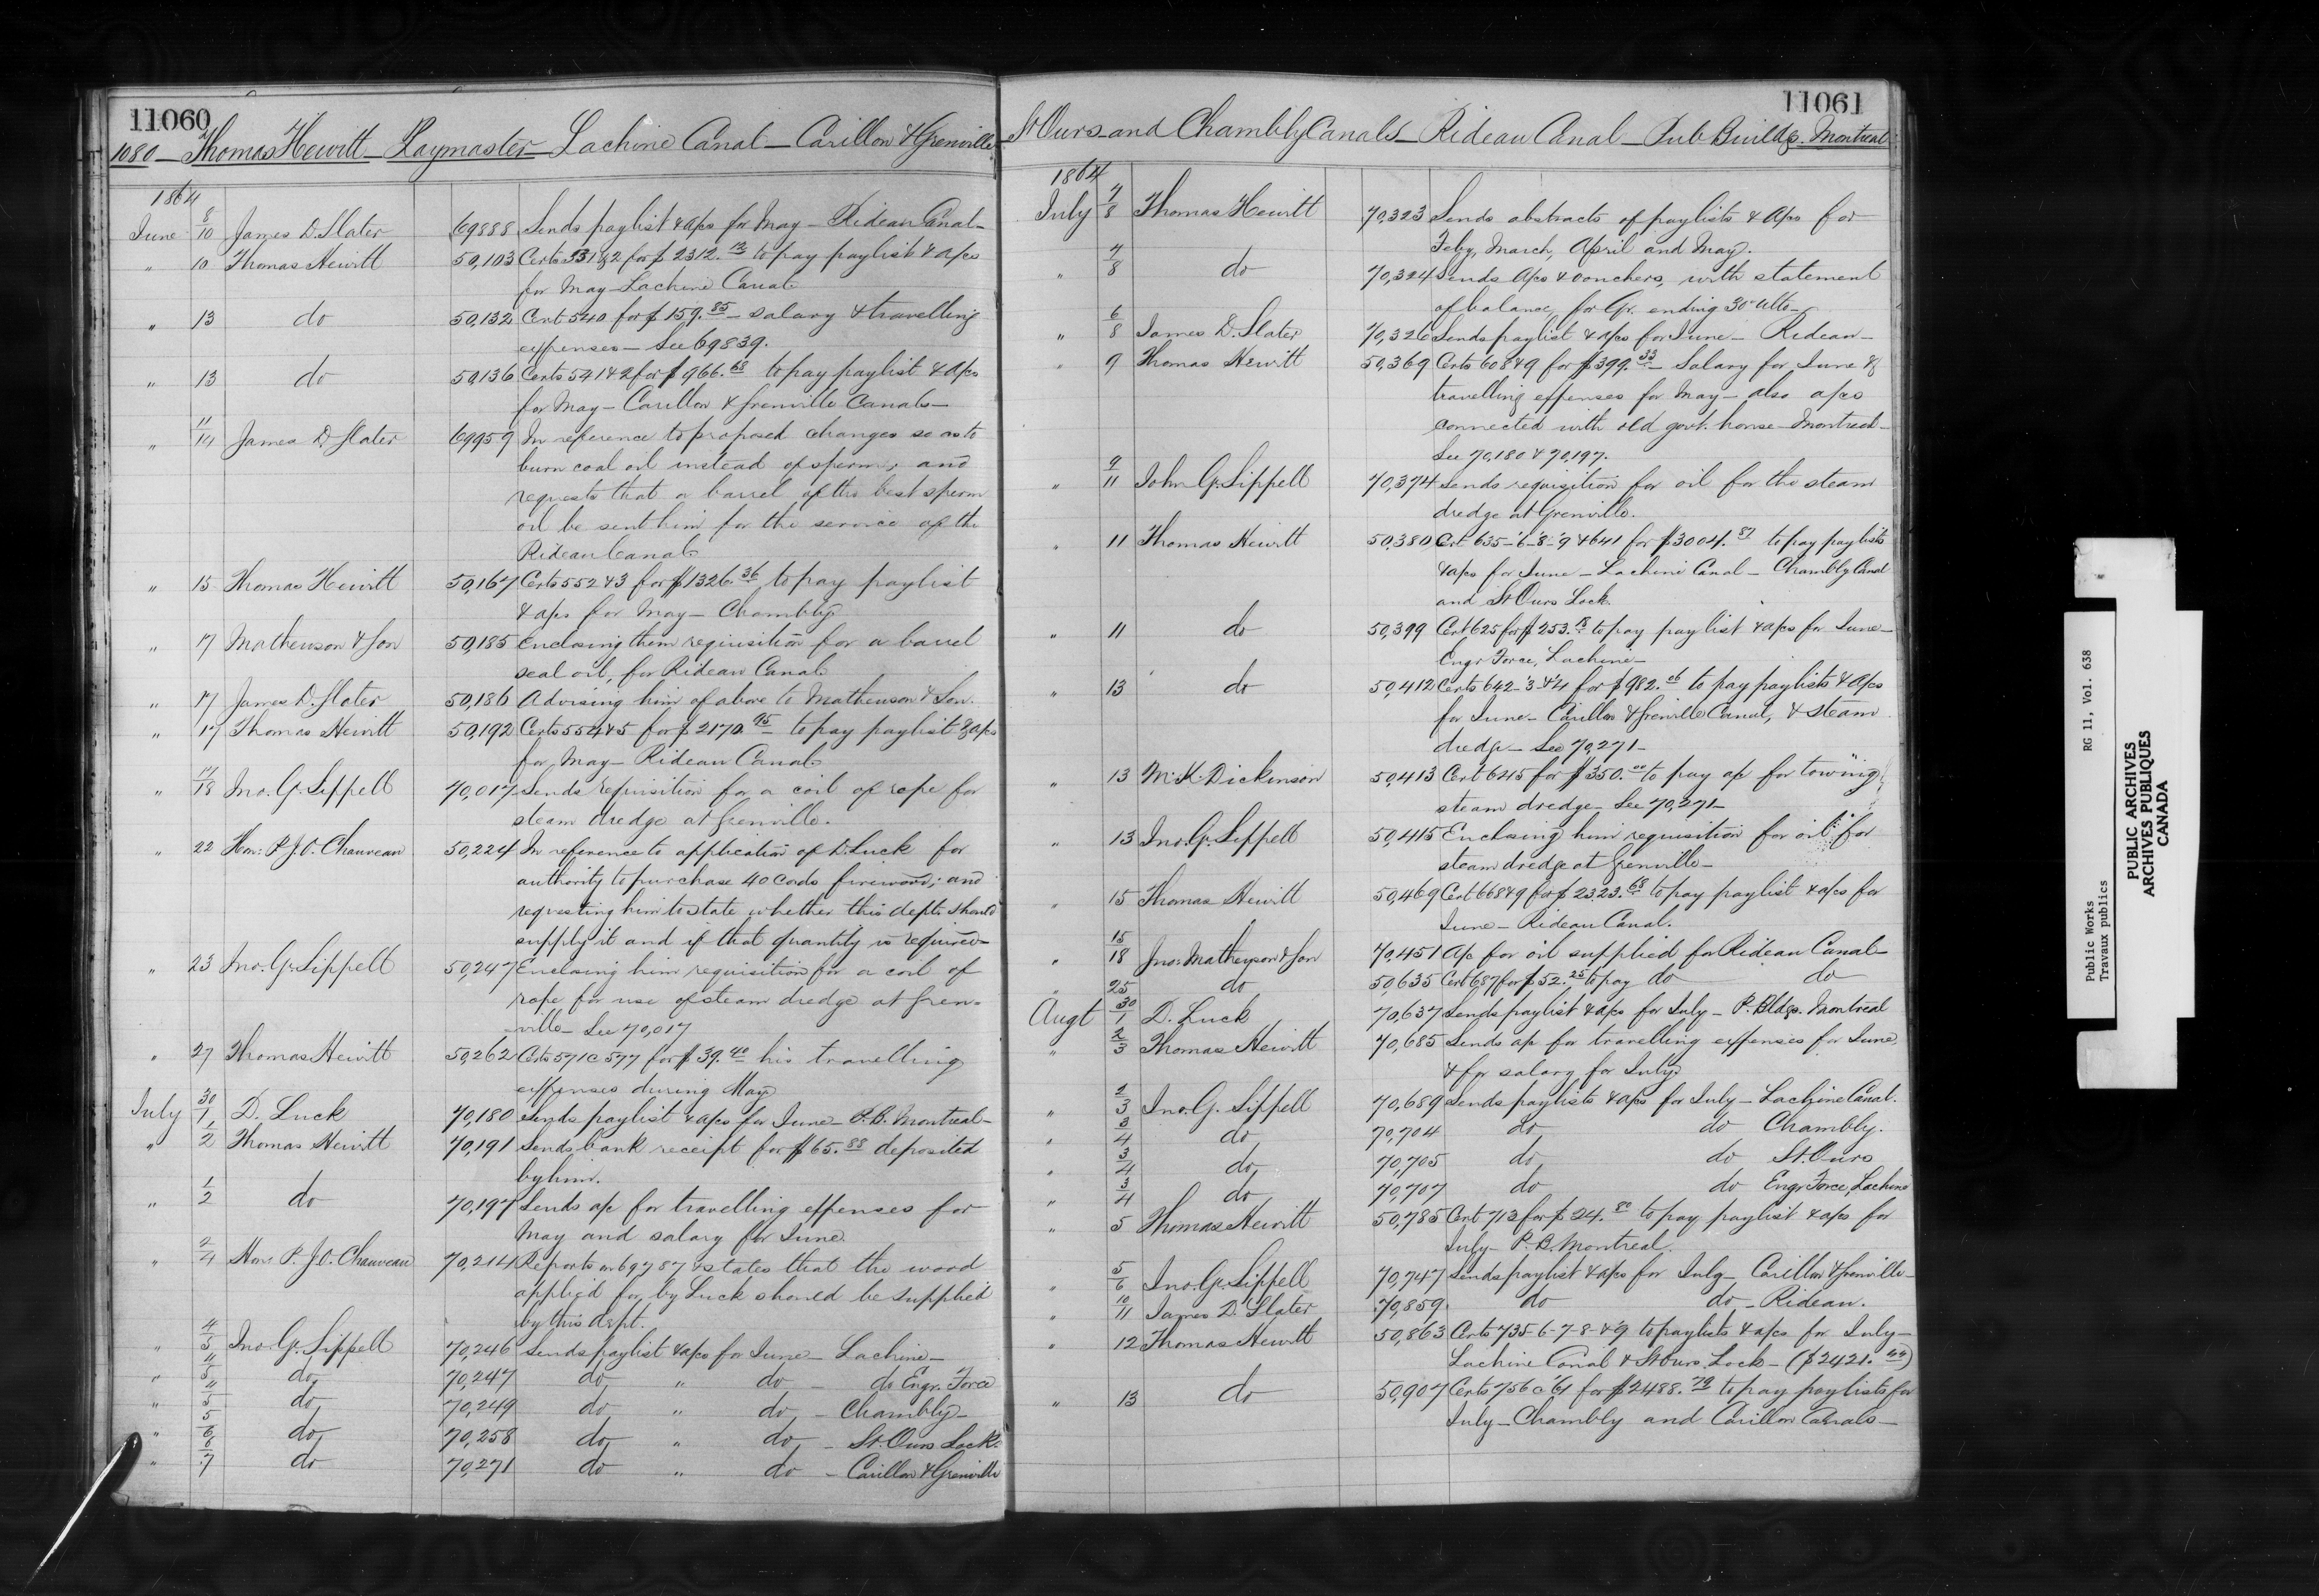 11060
1080 - Thomas Hewitt - Paymaster - Lachine Canal - Carillon & Grenville
1864
June 8/10 James D. Slater 69888 Sends paylist & a/cs for May - Rideau Canal -
" 10 Thomas Hewitt 50,103 Certs 531 & 2 for $2312. to pay paylist & a/cs
for May - Lachine Canal
" 13 do 50,132 Cert 540 for $159.85 - salary & travelling
expenses - See 69839.
" 13 do 50,136 Certs 541 & 2 for $966.68 to pay paylist & a/cs
for May - Carillon & Grenville Canals -
" 11/14 James D. Slater 69959 In reference to proposed changes so as to
burn coal oil instead of sperm, and
requests that a barrel of the best sperm
oil be sent him for the service of the
Rideau Canal.
" 15 Thomas Hewitt 50,167 Certs 552 & 3 for $1326.36 to pay paylist
& a/cs for May - Chambly
" 17 Mathewson & Son 50,185 Enclosing them requisition for a barrel
seal oil, for Rideau Canal
" 17 James D. Slater 50,186 Advising him of above to Mathewson & Son.
" 17 Thomas Hewitt 50,192 Certs 554 & 5 for $2170.95 to pay paylist & a/cs
for May - Rideau Canal
" 17/18 Jno. G. Sippell 70,017 Sends requisition for a coil of rope for
steam dredge at Grenville.
" 22 Hon: P. J. O. Chauveau 50,224 In reference to application of D. Luck for
authority to purchase 40 Cords firewood; and
requesting him to state whether this dept. should
supply it and if that quantity is required -
" 23 Jno. G. Sippell 50,247 Enclosing him requisition for a coil of
rope for use of steam dredge at Gren-
ville - See 70,017
" 27 Thomas Hewitt 50,262 Certs 571 @ 577 for $39.40 his travelling
expenses during May
July 30/1 D. Luck 70,180 Sends paylist & a/cs for June - P.B. Montreal -
" 1/2 Thomas Hewitt 70,191 Sends bank receipt for $65.88 deposited
by him.
" 1/2 do 70,197 Sends a/c for travelling expenses for
May and salary for June.
" 2/4 Hon. P. J. O. Chauveau 70,214 Reports on 69787 & states that the wood
applied for by Luck should be supplied
by this dept.
" 4/5 Jno. G. Sippell 70,246 Sends paylist & a/cs for June - Lachine -
" 4/5 do 70,247 do " do - do Engr. Force
" 4/5 do 70,249 do " do - Chambly -
" 5/6 do 70,258 do " do - St. Ours Lock.
" 6/7 do 70,271 do " do - Carillon & Grenville
11061
St Ours and Chambly Canals - Rideau Canal - Pub Buildgs. Montreal
1864
July 7/8 Thomas Hewitt 70,323 Sends abstracts of paylists & a/cs for
Feby, March, April and May.
" 7/8 do 70,324 Sends a/cs & vouchers, with statement
of balance, for Qr. ending 30 ulto -
" 6/8 James D. Slater 70,326 Sends paylist & a/cs for June - Rideau -
" 9 Thomas Hewitt 50,369 Certs 608 & 9 for $399.33 - Salary for June &
travelling expenses for May - also a/cs
connected with old govt. house - Montreal -
See 70,180 & 70,197.
" 9/11 John G. Sippell 70,374 Sends requisition for oil for the steam
dredge at Grenville.
" 11 Thomas Hewitt 50,380 Cert 635-'6-'8-'9 & 641 for $3004.87 to pay paylists
& a/cs for June - Lachine Canal - Chambly Canal
and St Ours Lock.
" 11 do 50,399 Cert 625 for $253.18 to pay paylist & a/cs for June -
Engr Force, Lachine -
" 13 do 50,412 Certs 642-'3-&'4 for $982.06 to pay paylists & a/cs
for June - Carillon & Grenville Canal, & steam
dredge - See 70,271 -
" 13 M. K. Dickinson 50,413 Cert 645 for $350.00 to pay a/c for towing
steam dredge - See 70,271 -
" 13 Jno. G. Sippell 50,415 Enclosing him requisition for oil for
steam dredge at Grenville -
" 15 Thomas Hewitt 50,469 Cert 668 & 9 for $2323.68 to pay paylist & a/cs for
June - Rideau Canal.
" 15/18 Jno: Mathewson & Son 70,451 A/c for oil supplied for Rideau Canal -
" 25 do 50,635 Cert 687 for $52.25 to pay do do
Augt 30/1 D. Luck 70,637 Sends paylist & a/cs for July - P. Bldgs. Montreal
" 2/3 Thomas Hewitt 70,685 Sends a/c for travelling expenses for June,
& for salary for July.
" 2/3 Jno. G. Sippell 70,689 Sends paylists & a/cs for July - Lachine Canal.
" 3/4 do 70,704 do do Chambly.
" 3/4 do 70,705 do do St. Ours
" 3/4 do 70,707 do do Engr Force, Lachine
" 5 Thomas Hewitt 50,785 Cert 713 for $24.80 to pay paylist & a/cs for
July - P. B. Montreal.
" 5/6 Jno. G. Sippell 70,747 Sends paylist & a/cs for July - Carillon & Grenville -
" 10/11 James D. Slater 70,859 do do - Rideau.
" 12 Thomas Hewitt 50,863 Certs 735-6-7-8-&'9 to paylists & a/cs for July -
Lachine Canal & St Ours Lock - ($2421.44)
" 13 do 50,907 Certs 756 @ '61 for $2488.79 to pay paylists for
July - Chambly and Carillon Canals -
Public Works RG 11, Vol. 638
Travaux publics
PUBLIC ARCHIVES
ARCHIVES PUBLIQUES
CANADA